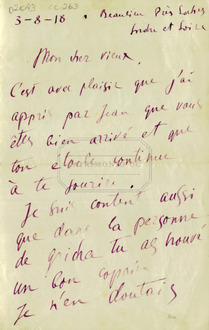 02643 cc 263
3-8-18 . Beaulieu Près Loches
Indre et Loire
Mon cher vieux,
C'est avec plaisir que j'ai
appris par Jean que vous
êtes bien arrivé et que
ton étoile continue
à te sourire.
Je suis content aussi
que dans la personne
de gricha tu as trouvé
un bon copain
Je n'en doutais